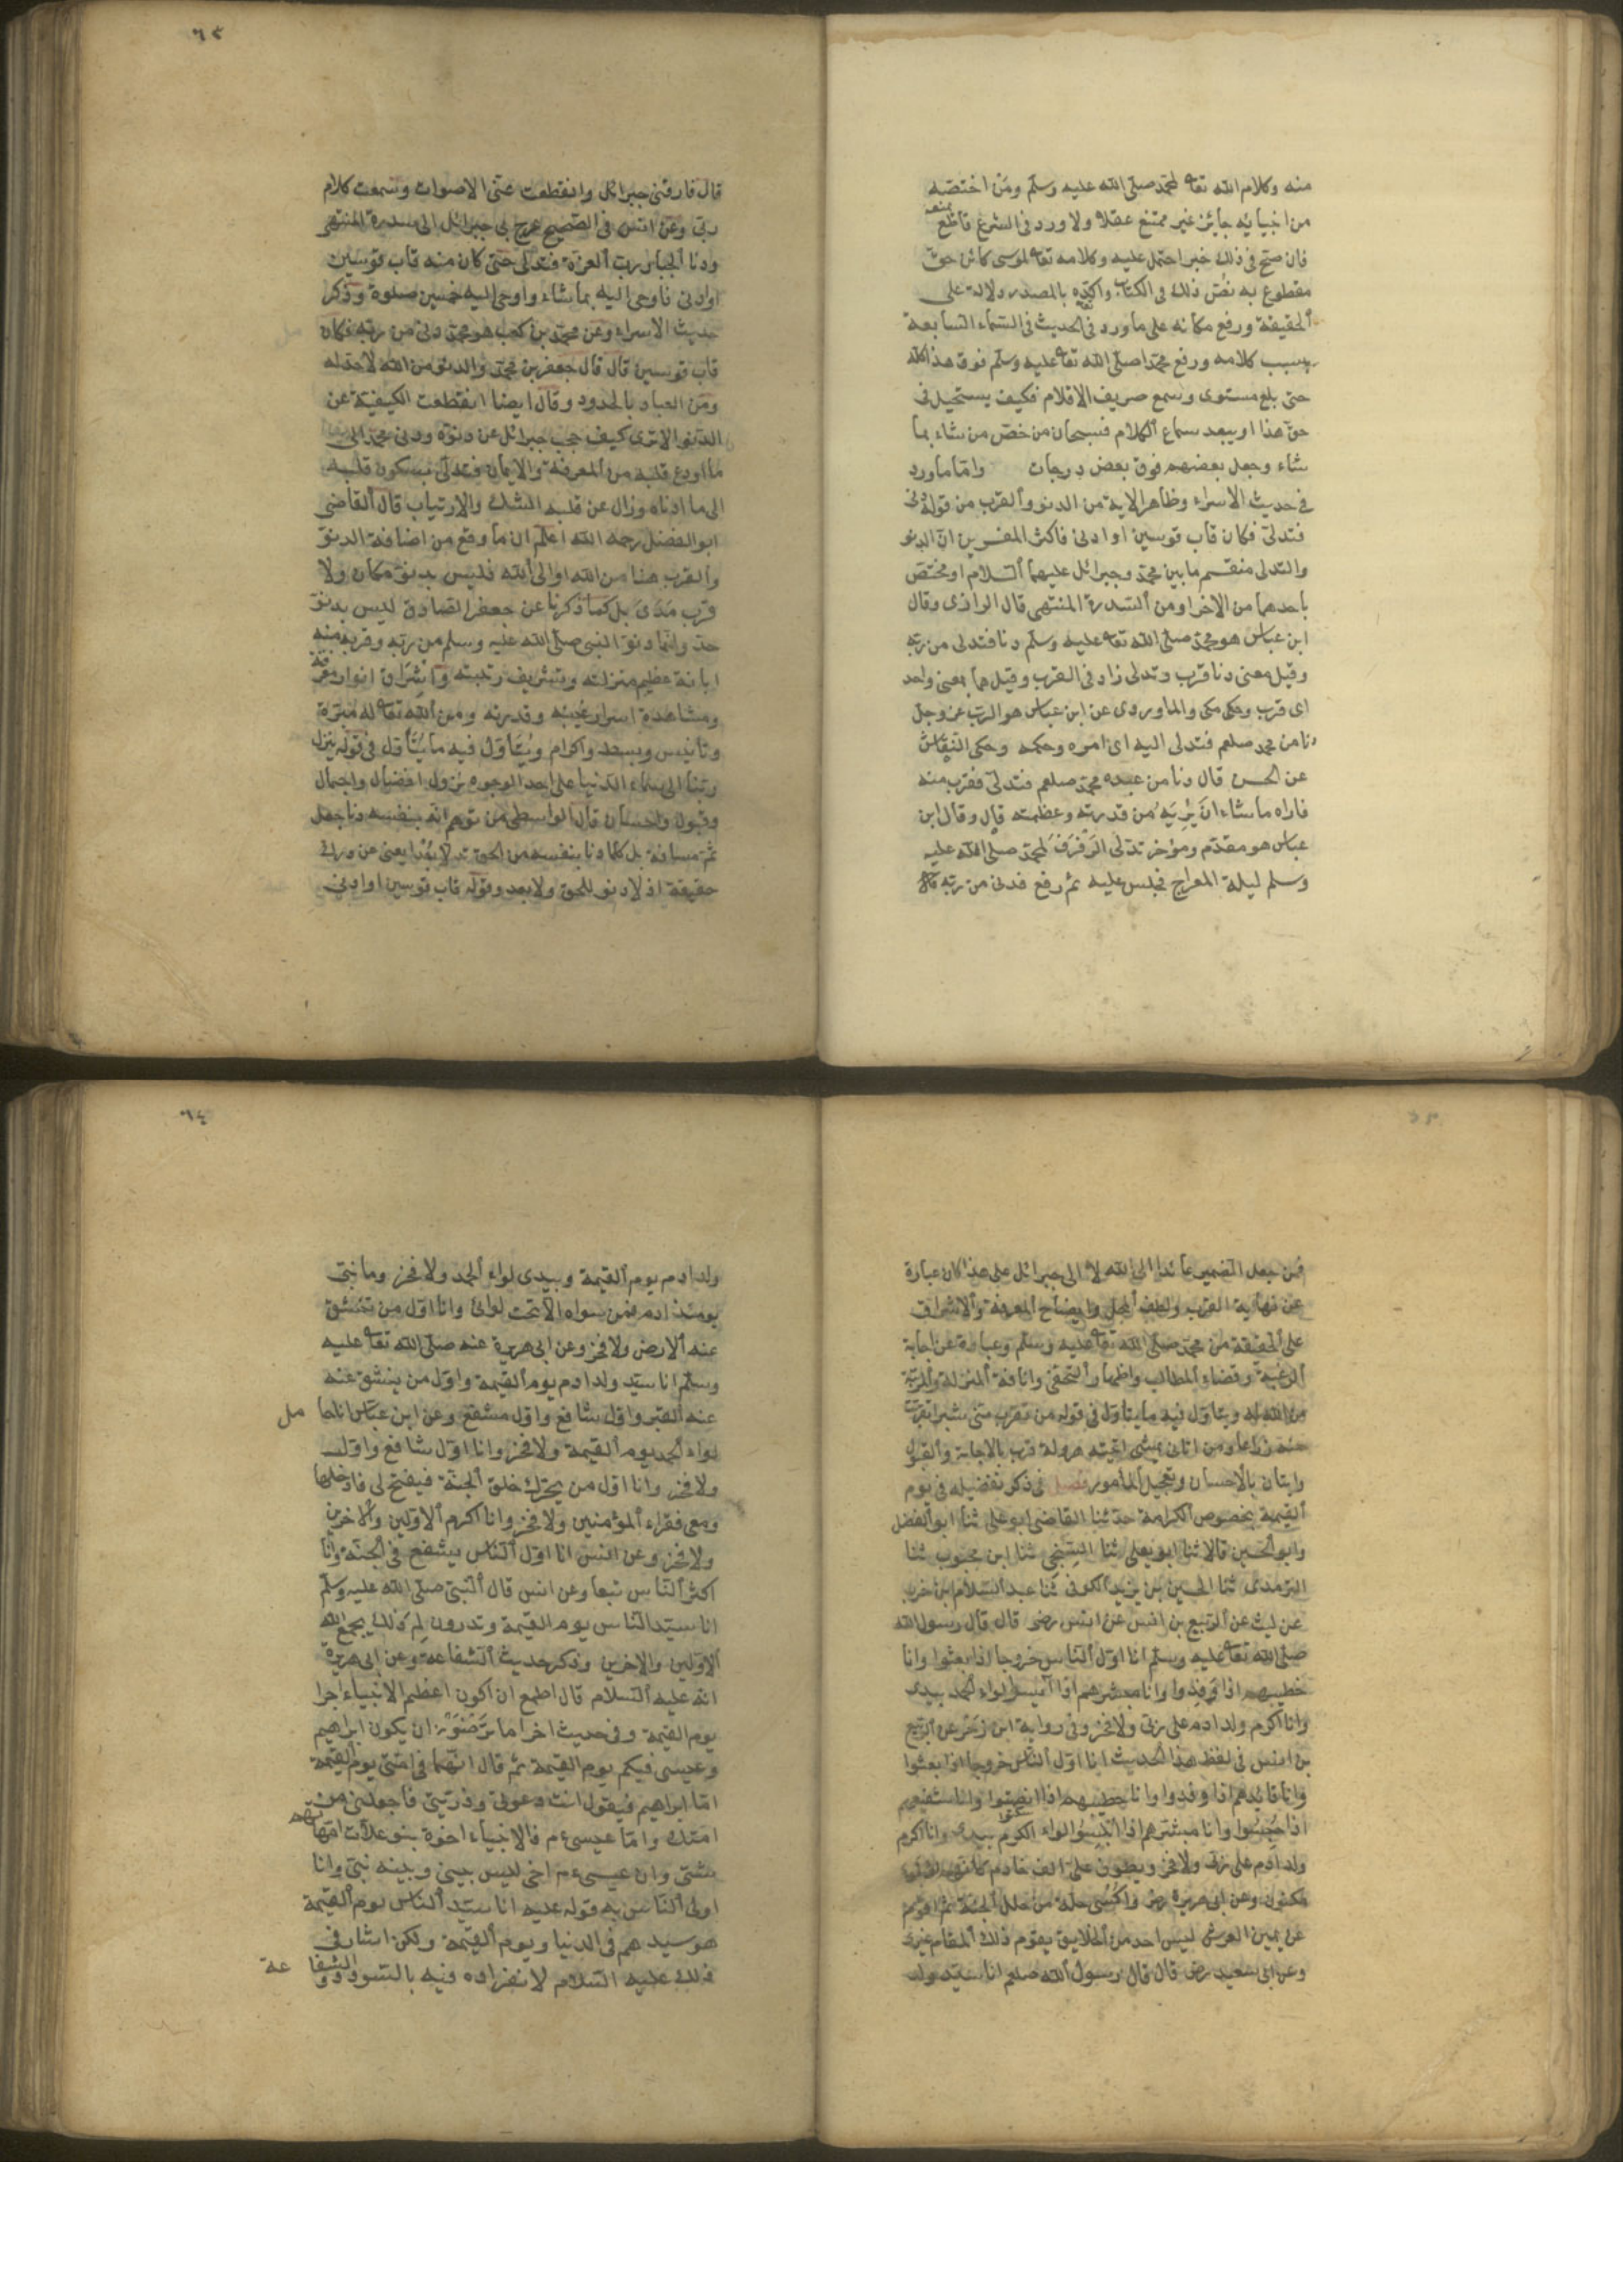 منه وكلام الله تعا لمحمد صلى الله عليه وسلم ومن اختصه
من انبيائه جايز غير ممتنع عقلا ولا ورد في الشرع قاطع يمنعه
فان صح في ذلك خبر احتمل عليه وكلامه تعا لموسى كائن حق
مقطوع به نص ذلك في الكتاب واكده بالمصدر دلالة على
الحقيقة ورفع مكانه على ما ورد في الحديث في السماء السابعة
بسبب كلامه ورفع محمدا صلى الله تعا عليه وسلم فوق هذا كله
حتى بلغ مستوى وسمع صريف الاقلام فكيف يستحيل في
حق هذا او يبعد سماع الكلام فسبحان من خص من شاء بما
شاء وجعل بعضهم فوق بعض درجات واما ما ورد
في حديث الاسراء وظاهر الاية من الدنو والقرب من قوله دنى
فتدلى فكان قاب قوسين او ادنى فاكثر المفسرين ان الدنو
والتدلى منقسم ما بين محمد وجبرائل عليهما السلام او مختص
باحدهما من الاخر او من السدرة المنتهى قال الرازى وقال
ابن عباس هو محمد صلى الله تعا عليه وسلم دنا فتدلى من ربه
وقيل معنى دنا قرب وتدلى زاد في القرب وقيل هما بمعنى واحد
اى قرب وحكى مكى والماوردى عن ابن عباس هو الرب عز وجل
دنا من محمد صلعم فتدلى اليه اى امره وحكمه وحكى النقاش
عن الحسن قال دنا من عبده محمد صلعم فتدلى فقرب منه
فاراه ما شاء ان يريه من قدرته وعظمته قال وقال ابن
عباس هو مقدم ومؤخر تدلى الرفرف لمحمد صلى الله عليه
وسلم ليلة المعراج فجلس عليه ثم رفع فدنى من ربه قال
٦٣
قال فارقنى جبرائل وانقطعت عنى الاصوات وسمعت كلام
ربى وعن انس في الصحيح عرج بى جبرائل الى سدرة المنتهى
ودنا الجبار رب العزة فتدلى حتى كان منه قاب قوسين
او ادنى فاوحى اليه بما شاء واوحى اليه خمسين صلوة وذكر
حديث الاسراء وعن محمد بن كعب هو محمد دنى من ربه فكان
قاب قوسين قال قال جعفر بن محمد والدنو من الله لا حد له
ومن العباد بالحدود وقال ايضا انقطعت الكيفية عن
الدنو الا ترى كيف حجب جبرائل عن دنوه ودنى محمد الى
ما اودع قلبه من المعرفة والايمان فتدلى بسكون قلبه
الى ما ادناه وزال عن قلبه الشك والارتياب قال القاضى
ابو الفضل رحمه الله اعلم ان ما وقع من اضافة الدنو
والقرب هنا من الله او الى الله فليس بدنو مكان ولا
قرب مدى بل كما ذكرنا عن جعفر الصادق ليس بدنو
حد وانما دنو النبى صلى الله عليه وسلم من ربه وقربه منه
ابانة عظيم منزلته وتشريف رتبته واشراق انوار معرفته
ومشاهدة اسرار غيبه وقدرته ومن الله تعا له مبرة
وتأنيس وبسط واكرام ويتأول فيه ما يتأول في قوله ينزل
ربنا الى سماء الدنيا على احد الوجوه نزول افضال واجمال
وقبول واحسان قال الواسطى من توهم انه بنفسه دنا جعل
ثم مسافة بل كلما دنا بنفسه من الحق تدلى بعدا يعنى عن درك
حقيقة اذ لا دنو للحق ولا بعد وقوله قاب قوسين او ادنى
فمن جعل الضمير عائدا الى الله لا الى جبرائل على هذا كان عبارة
عن نهاية القرب ولطف المحل وايضاح المعرفة والاشراف
على الحقيقة من محمد صلى الله تعا عليه وسلم وعبارة عن اجابة
الرغبة وقضاء المطالب واظهار التحفى وانافة المنزلة والمرتبة
من الله له ويتأول فيه ما يتأول في قوله من تقرب منى شبرا تقربت
منه ذراعا ومن اتانى يمشى اتيته هرولة قرب بالاجابة والقبول
واتيان بالاحسان وتعجيل المأمور فصل في ذكر تفضيله في يوم
القيمة بخصوص الكرامة حدثنا القاضى ابو على ثنا ابو الفضل
وابو الحسين قالا ثنا ابو يعلى ثنا السنجى ثنا ابن محبوب ثنا
الترمدى ثنا الحسين بن يزيد الكوفى ثنا عبد السلام بن حرب
عن ليث عن الربيع بن انس عن انس رضى قال قال رسول الله
صلى الله تعا عليه وسلم انا اول الناس خروجا اذا بعثوا وانا
خطيبهم اذا وفدوا وانا مبشرهم اذا ايسوا لواء الحمد بيدى
وانا اكرم ولد ادم على ربى ولا فخر وفى رواية ابن زحر عن الربيع
بن انس في لفظ هذا الحديث انا اول الناس خروجا اذا بعثوا
وانا قائدهم اذا وفدوا وانا خطيبهم اذا انصتوا وانا شفيعهم
اذا حبسوا وانا مبشرهم اذا ابلسوا لواء الكرم بيدى وانا اكرم
ولد ادم على ربى ولا فخر ويطوف على الف خادم كانهم لؤلؤ
مكنون وعن ابى هريرة رض واكسى حلة من حلل الجنة ثم اقوم
عن يمين العرش ليس احد من الخلايق يقوم ذلك المقام غيرى
وعن ابى سعيد رض قال قال رسول الله صلعم انا سيد ولد
٦٤
ولد ادم يوم القيمة وبيدى لواء الحمد ولا فخر وما نبى
يومئذ ادم فمن سواه الا تحت لوائى وانا اول من تنشق
عنه الارض ولا فخر وعن ابى هريرة عنه صلى الله تعا عليه
وسلم انا سيد ولد ادم يوم القيمة واول من ينشق عنه
عنه القبر واول شافع واول مشفع وعن ابن عباس انا حا مل
لواء الحمد يوم القيمة ولا فخر وانا اول شافع واول
ولا فخر وانا اول من يحرك خلق الجنة فيفتح لى فادخلها
ومعى فقراء المؤمنين ولا فخر وانا اكرم الاولين والاخرين
ولا فخر وعن انس انا اول الناس يشفع في الجنة وانا
اكثر الناس تبعا وعن انس قال النبى صلى الله عليه وسلم
انا سيد الناس يوم القيمة وتدرون لم ذلك يجمع الله
الاولين والاخرين وذكر حديث الشفاعة وعن ابى هريرة
انه عليه السلام قال اطمع ان اكون اعظم الانبياء اجرا
يوم القيمة وفى حديث اخر اما ترضون ان يكون ابراهيم
وعيسى فيكم يوم القيمة ثم قال انهما في امتى يوم القيمة
اما ابراهيم فيقول انت دعوتى وذريتى فاجعلنى من
امتك واما عيسى ع م فالانبياء اخوة بنو علات امهاتهم
شتى وان عيسى ع م اخى ليس بينى وبينه نبى وانا
اولى الناس به قوله عليه انا سيد الناس يوم القيمة
هو سيدهم في الدنيا ويوم القيمة ولكن اشار في
ذلك عليه السلام لانفراده فيه بالسودد و الشفا عة